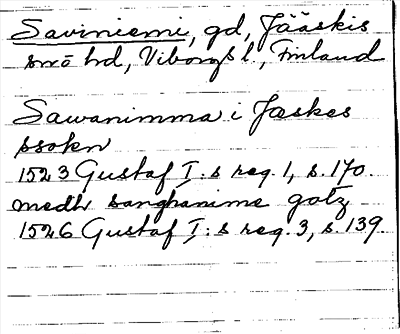 Saviniemi, gd, Jääskis
små hd, Viborgs l., Finland
Sawanimma i Jæskes
psokn
1523 Gustaf I:s reg. 1, s. 170.
medh sanghanime gotz
1526 Gustaf I:s reg. 3, s. 139